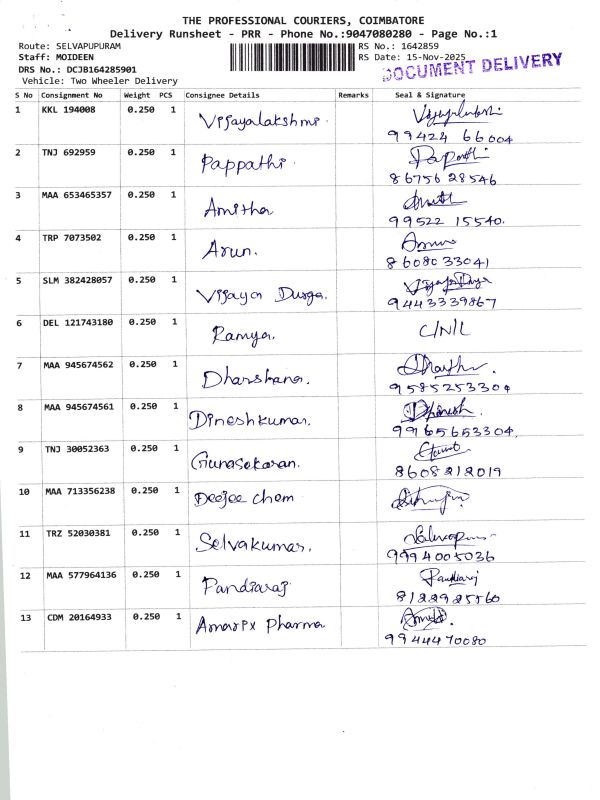 THE PROFESSIONAL COURIERS, COIMBATORE
Delivery Runsheet - PRR - Phone No.:9047080280 - Page No.:1
Route: SELVAPUPURAM RS No.: 1642859
Staff: MOIDEEN RS Date: 15-Nov-2025
DRS No.: DCJB164285901 DOCUMENT DELIVERY
Vehicle: Two Wheeler Delivery
S No Consignment No Weight PCS Consignee Details Remarks Seal & Signature
1 KKL 194008 0.250 1 Vijayalakshmi
99424 66004
2 TNJ 692959 0.250 1 Pappathi
86756 28546
3 MAA 653465357 0.250 1 Amitha
99522 15540.
4 TRP 7073502 0.250 1 Arun.
8608033041
5 SLM 382428057 0.250 1 Vijaya Durga.
9443339867
6 DEL 121743180 0.250 1 Ramya. C/N/L
7 MAA 945674562 0.250 1 Dharshana.
9585253304
8 MAA 945674561 0.250 1 Dineshkumar. Dhinesh.
9965653304.
9 TNJ 30052363 0.250 1 Gunasekaran.
8608212019
10 MAA 713356238 0.250 1 Deejee Chem
11 TRZ 52030381 0.250 1 Selvakumar.
9994005036
12 MAA 577964136 0.250 1 Pandiaraj Pandiaraj
8122925560
13 CDM 20164933 0.250 1 Amarpx Pharma
9944470080